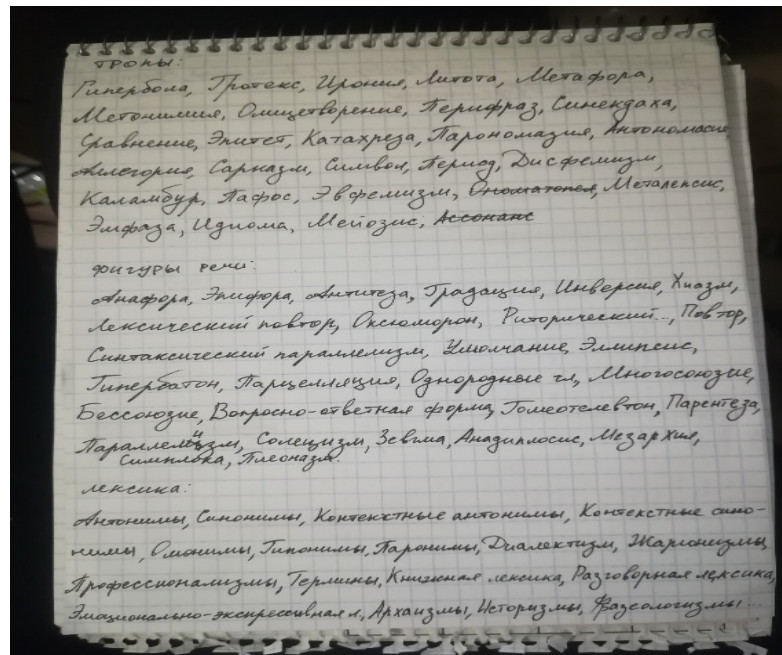 тропы:
Гипербола, Гротекс, Ирония, Литота, Метафора,
Метонимия, Олицетворение, Перифраз, Синекдаха,
Сравнение, Эпитет, Катахреза, Парономазия, Антономасия,
Аллегория, Сарказм, Символ, Период, Дисфемизм,
Каламбур, Пафос, Эвфемизм, Ономатопея, Металепсис,
Эмфаза, Идиома, Мейозис, Ассонанс
фигуры речи:
Анафора, Эпифора, Антитеза, Градация, Инверсия, Хиазм,
Лексический повтор, Оксюморон, Риторический..., Повтор,
Синтаксический параллелизм, Умолчание, Эллипсис,
Гипербатон, Парцелляция, Однородные чл, Многосоюзие,
Бессоюзие, Вопросно-ответная форма, Гомеотелевтон, Парентеза,
Параллелизм, Солецизм, Зевгма, Анадиплосис, Мезархия,
Симплока, Плеоназм.
лексика:
Антонимы, Синонимы, Контекстные антонимы, Контекстные сино-
нимы, Омонимы, Гипонимы, Паронимы, Диалектизм, Жаргонизмы,
Профессионализмы, Термины, Книжная лексика, Разговорная лексика,
Эмационально-экспрессивная л, Архаизмы, Историзмы, Фразеологизмы...